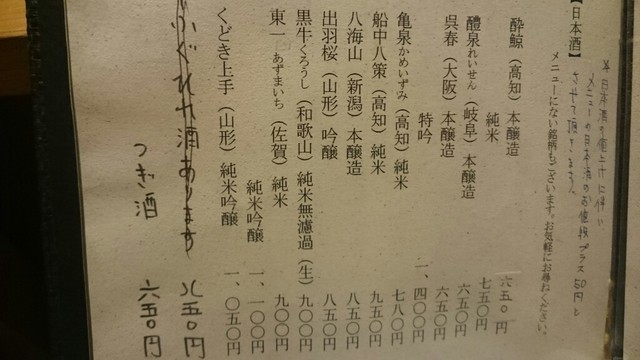 【日本酒】
※日本酒の値上げに伴い
メニューの日本酒のお値段プラス50円と
させて頂きます。
メニューにない銘柄もございます。お気軽にお尋ねください。
酔鯨（高知）本醸造 六五〇円
純米 七五〇円
醴泉れいせん（岐阜）本醸造 六五〇円
呉春（大阪）本醸造 六五〇円
特吟 一、四〇〇円
亀泉かめいずみ（高知）純米 七八〇円
船中八策（高知）純米 九五〇円
八海山（新潟）本醸造 八五〇円
出羽桜（山形）吟醸 八五〇円
黒牛くろうし（和歌山）純米無濾過（生） 九〇〇円
東一あずまいち（佐賀）純米 九〇〇円
純米吟醸 一、一〇〇円
くどき上手（山形）純米吟醸 一、〇五〇円
酒あります 八五〇円
つぎ酒 六五〇円